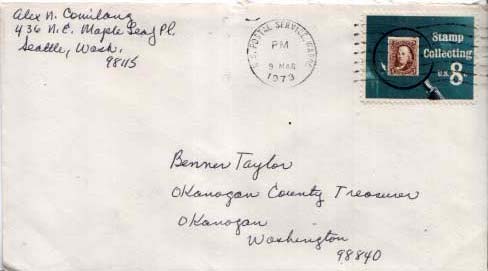 Alex N. Comilang
436 N.E. Maple Leaf Pl.
Seattle, Wash.
98115
U.S. POSTAL SERVICE, WA
PM
9 MAR
1973
Stamp
Collecting
U.S. 8
Benner Taylor
Okanogan County Treasurer
Okanogan
Washington
98840